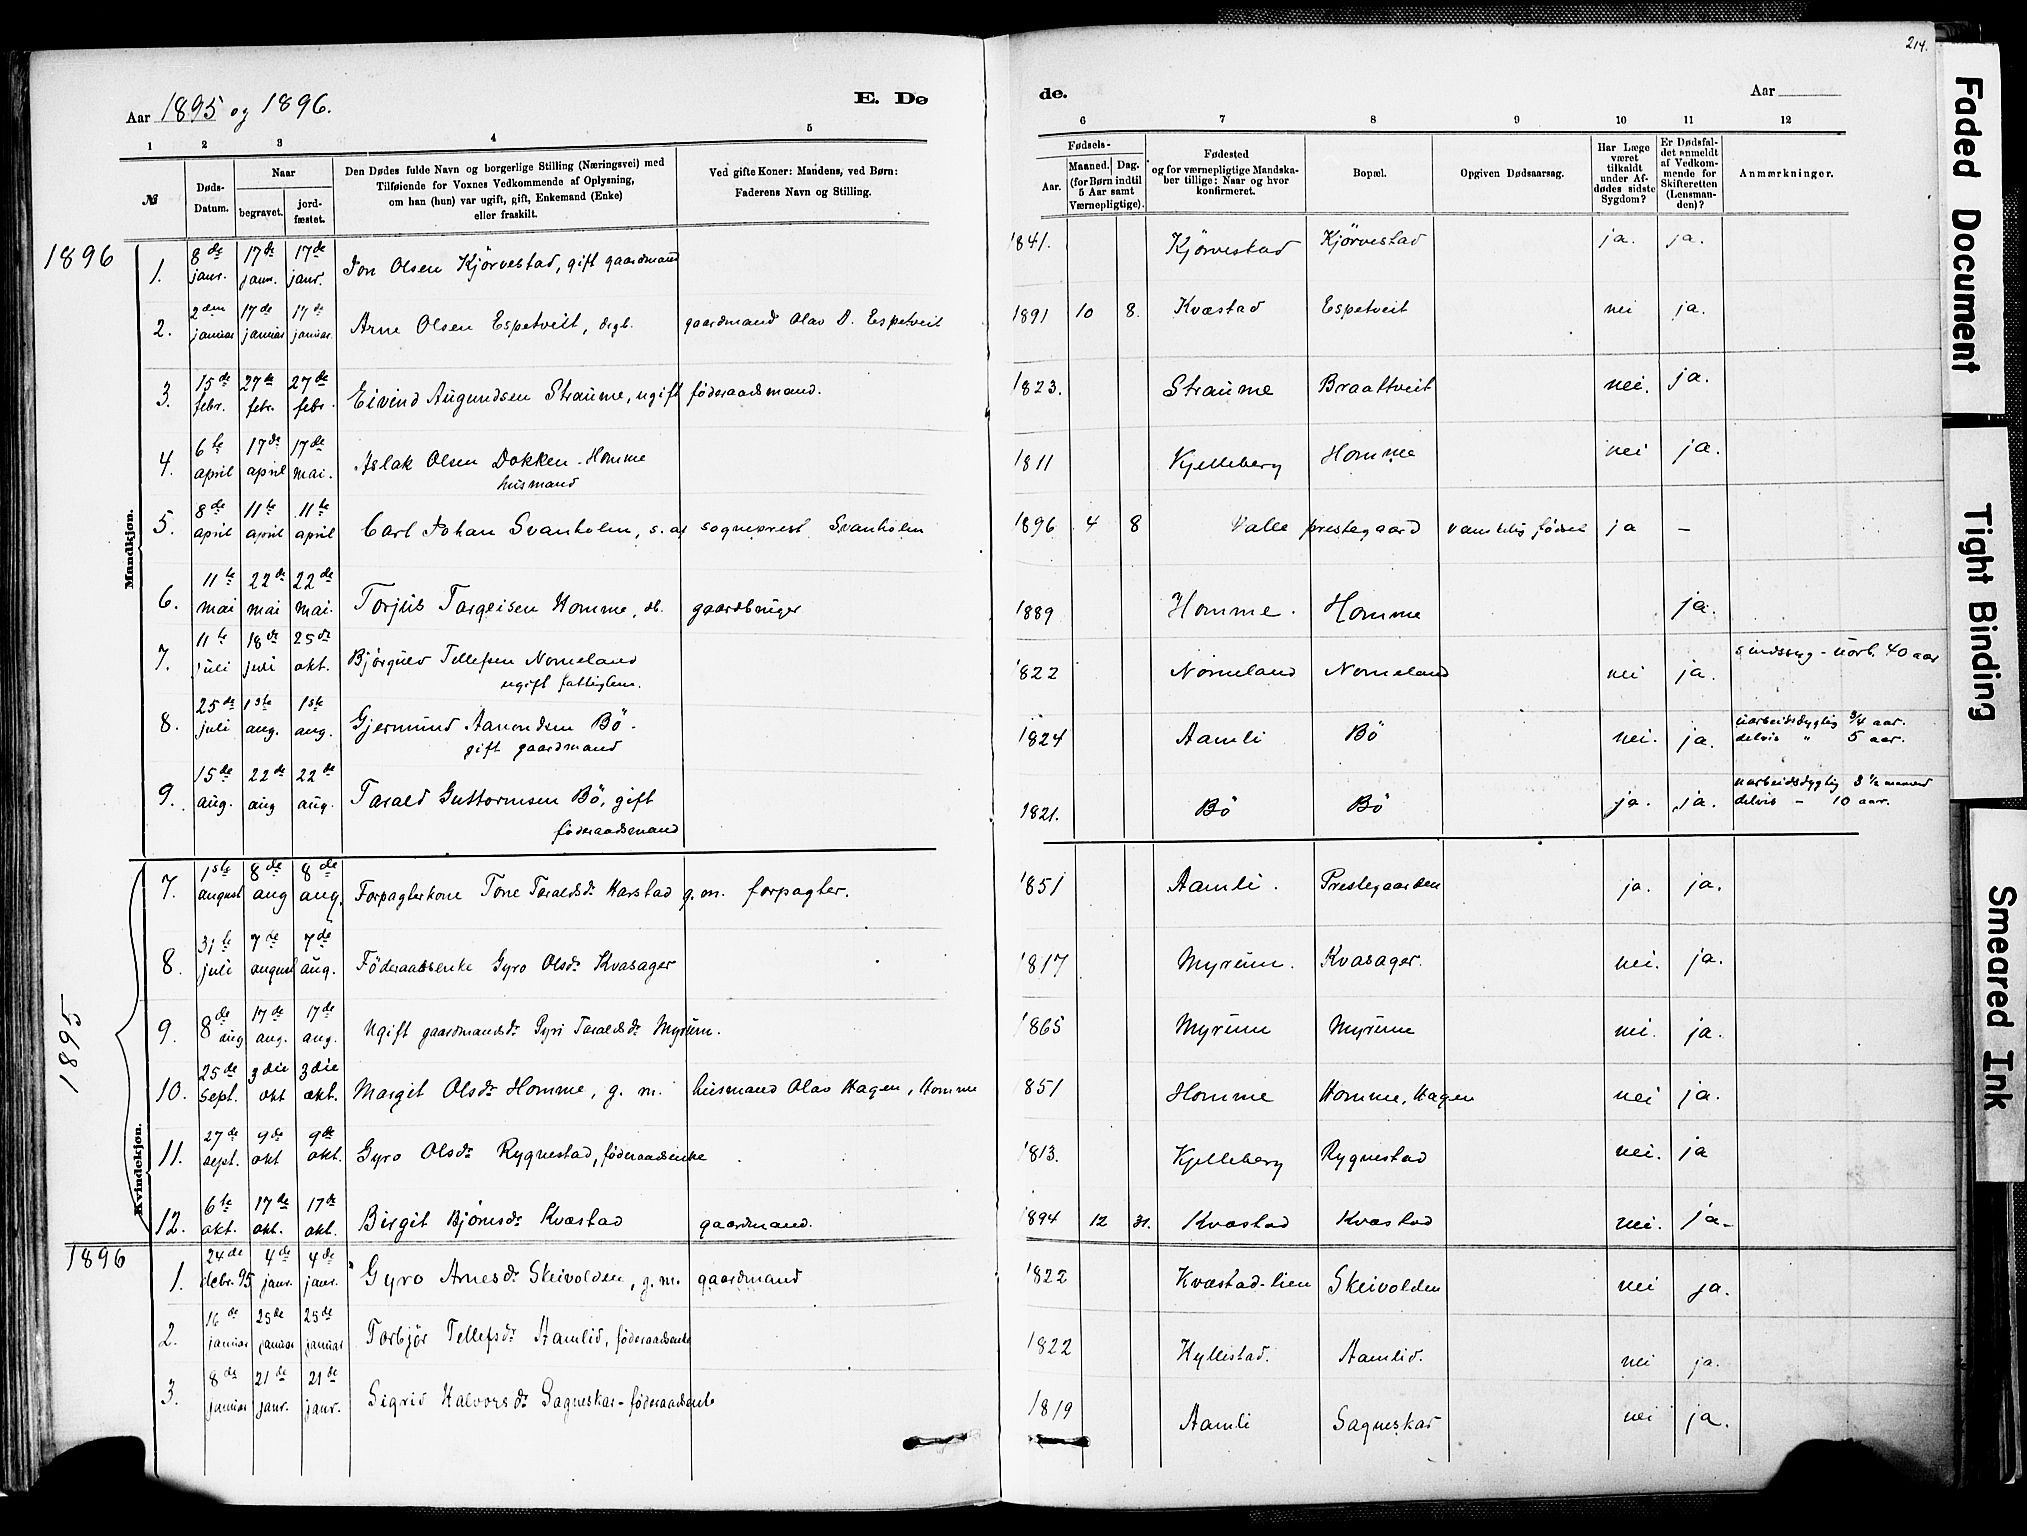 214.
Aar 1895 og 1896.
E. Dø
de.
Aar
1 2 3 4 5 6 7 8 9 10 11 12
№
Døds-Datum.
Naar
begravet.
jord-fæstet.
Den Dødes fulde Navn og borgerlige Stilling (Næringsvei) med
Tilføiende for Voxnes Vedkommende af Oplysning,
om han (hun) var ugift, gift, Enkemand (Enke)
eller fraskilt.
Ved gifte Koner: Mandens, ved Børn:
Faderens Navn og Stilling.
Fødsels-
Aar.
Maaned. Dag.
(for Børn indtil
5 Aar samt
Værnepligtige).
Fødested
og for værnepligtige Mandska-
ber tillige: Naar og hvor
konfirmeret.
Bopæl.
Opgiven Dødsaarsag.
Har Læge
været
tilkaldt
under Af-
dødes sidste
Sygdom?
Er Dødsfal-
det anmeldt
af Vedkom-
mende for
Skifteretten
(Lensman-
den)?
Anmærkninger.
Mandkjøn.
1896
1. 8de janr. 17de janr. 17de janr. Jon Olsen Kjörvestad, gift gaardmand 1841. Kjörvestad Kjörvestad ja. ja.
2. 2den januar 17de januar 17de januar Arne Olsen Espetveit, drgb. gaardmand Olav D. Espetveit 1891 10 8. Kvæstad Espetveit nei ja.
3. 15de febr. 27de febr. 27de febr. Eivind Augundsen Straume, ugift föderaadsmand. 1823. Straume Braattveit nei. ja.
4. 6te april 17de april 17de mai. Aslak Olsen Dokken-Homme
husmand 1811 Kjelleberg Homme nei ja.
5. 8de april 11te april 11te april Carl Johan Svanholm, s. af sogneprest Svanholm 1896 4 8 Valle prestegaard vanskelig födsel ja –
6. 11te mai 22de mai 22de mai. Torjus Targeisen Homme, db. gaardbruger 1889 Homme. Homme ja.
7. 11te juli 18de juli 25de okt. Björgulv Tellefsen Nomeland
ugift fattiglem. 1822 Nomeland Nomeland nei ja. sindssyg - uarb. 40 aar
8. 25de juli 1ste aug. 1ste aug. Gjermund Aanondsen Bö.
gift gaardmand 1824 Aamli Bö nei. ja. uarbeidsdygtig 3/4 aar.
delvis " 5 aar.
9. 15de aug. 22de aug 22de aug. Tarald Guttormsen Bö, gift
föderaadsmand 1821. Bö Bö ja. ja. uarbeidsdygtig 3 ½ maaned
delvis – 10 aar.
Kvindekjøn.
1895
7. 1ste august 8de aug 8de aug. Forpagterkone Tone Taraldsdr. Harstad g. m. forpagter. 1851 Aamli. Prestegaarden ja. ja.
8. 31te juli 7de august 7de aug. Föderaadsenke Gyro Olsdr. Kvasager 1817 Myrum. Kvasager. nei. ja.
9. 8de aug 17de aug. 17de aug. Ugift gaardmandsdr. Gyri Taraldsdr. Myrum. 1865 Myrum Myrum nei. ja.
10. 25de sept. 3die okt 3die okt. Margit Olsdr. Homme, g. m. husmand Olav Hagen, Homme 1851 Homme Homme, Hagen nei ja.
11. 27de sept. 9de okt 9de okt. Gyro Olsdr. Rygnestad, föderaadsenke 1813. Kjelleberg Rygnestad nei. ja
12. 6te okt. 17de okt. 17de okt. Birgit Björnsdr. Kvæstad gaardmand. 1894 12 31. Kvæstad Kvæstad nei. ja.
1896
1. 24de debr. 95 4de janr. 4de janr. Gyro Arnesdr. Skeivolden, g. m. gaardmand 1822 Kvæstad-lien Skeivolden nei ja.
2. 16de januar 25de januar 25de januar Torbjör Tellefsdr. Aamlid, föderaadsenke 1822 Hyllestad. Aamlid. nei ja.
3. 8de januar 21de janr. 21de janr. Sigrid Halvorsdr. Sagneskar - föderaadsenke 1819 Aamli Sagneskar nei ja.
Faded Document
Tight Binding
Smeared Ink